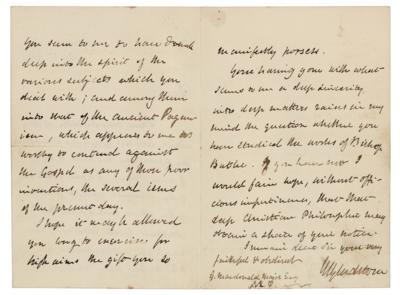 you seem to me to have drunk
deep into the spirit of the
various subjects which you
deal with; and among them
into that of the ancient Pagan-
ism, which appears to me as
worthy to contend against
the Gospel as any of those poor
inventions, the several isms
of the present day.
I hope it may be allowed
you long to exercise for
high aims the gift you so
manifestly possess.
Your having gone with what
seems to me a deep sincerity
into deep matters raises in my
mind the question whether you
have studied the works of Bishop
Butler. If you have not I
would fain hope, without offi-
cious impertinence, that that
deep Christian Philosopher may
obtain a share of your notice.
I remain dear Sir your very
faithful & obedient
WEGladstone
G. Macdonald Major Esq